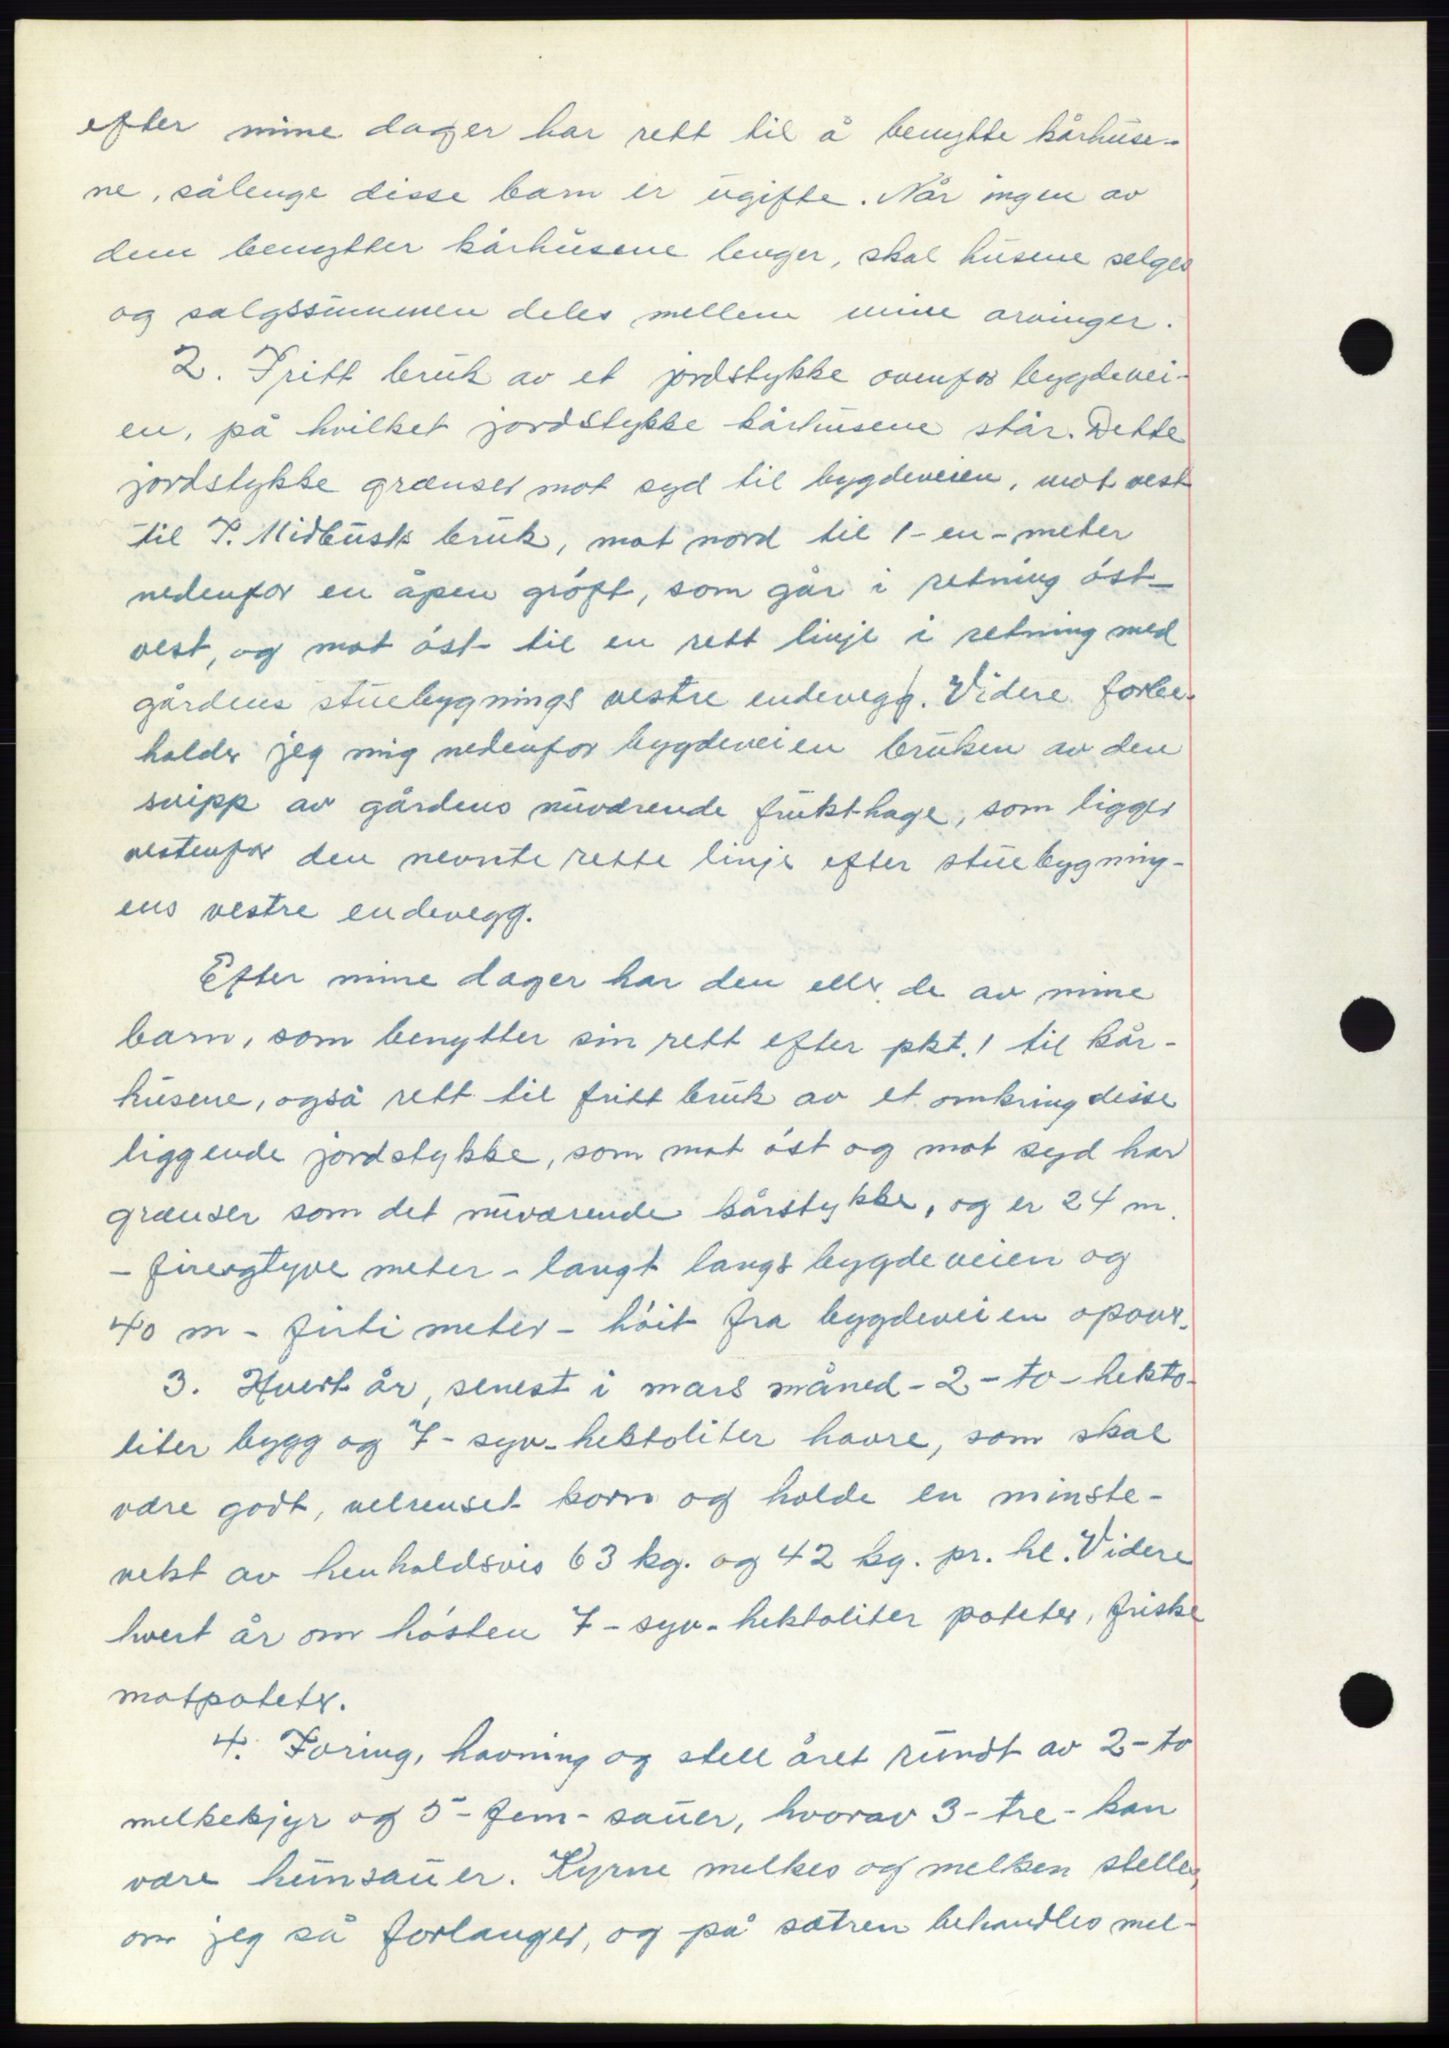 efter mine dager har rett til å benytte kårhuse-
ne, sålenge disse barn er ugifte. Når ingen av
dem benytter kårhusene lenger, skal husene selges
og salgssummen deles mellem mine arvinger.
2. Fritt bruk av et jordstykke ovenfor bygdevei-
en, på hvilket jordstykke kårhusene står. Dette
jordstykke grænser mot syd til bygdeveien, mot vest
til P. Midbusts bruk, mot nord til 1-en-meter
nedenfor en åpen grøft, som går i retning øst-
vest, og mot øst til en rett linje i retning med
gårdens stuebygnings vestre endevegg. Videre forbe-
holder jeg mig nedenfor bygdeveien bruken av den
snipp av gårdens nuværende frukthage, som ligger
vestenfor den nevnte rette linje efter stuebygning-
ens vestre endevegg.
Efter mine dager har den eller de av mine
barn, som benytter sin rett efter pkt. 1 til kår-
husene, også rett til fritt bruk av et omkring disse
liggende jordstykke, som mot øst og mot syd har
grænser som det nuværende kårstykke, og er 24 m.
- fireogtyve meter - langt langs bygdeveien og
40 m - firti meter - høit fra bygdeveien opover.
3. Hvert år, senest i mars måned - 2 - to - hekto-
liter bygg og 7 - syv - hektoliter havre, som skal
være godt, velrenset korn og holde en minste-
vekt av henholdsvis 63 kg. og 42 kg. pr. hl. Videre
hvert år om høsten 7 - syv - hektoliter poteter, friske
matpoteter.
4. Foring, havning og stell året rundt av 2 - to
melkekjyr og 5 - fem - sauer, hvorav 3 - tre - kan
være hunsauer. Kyrne melkes og melken stelles,
om jeg så forlanger, og på sætren behandles mel-